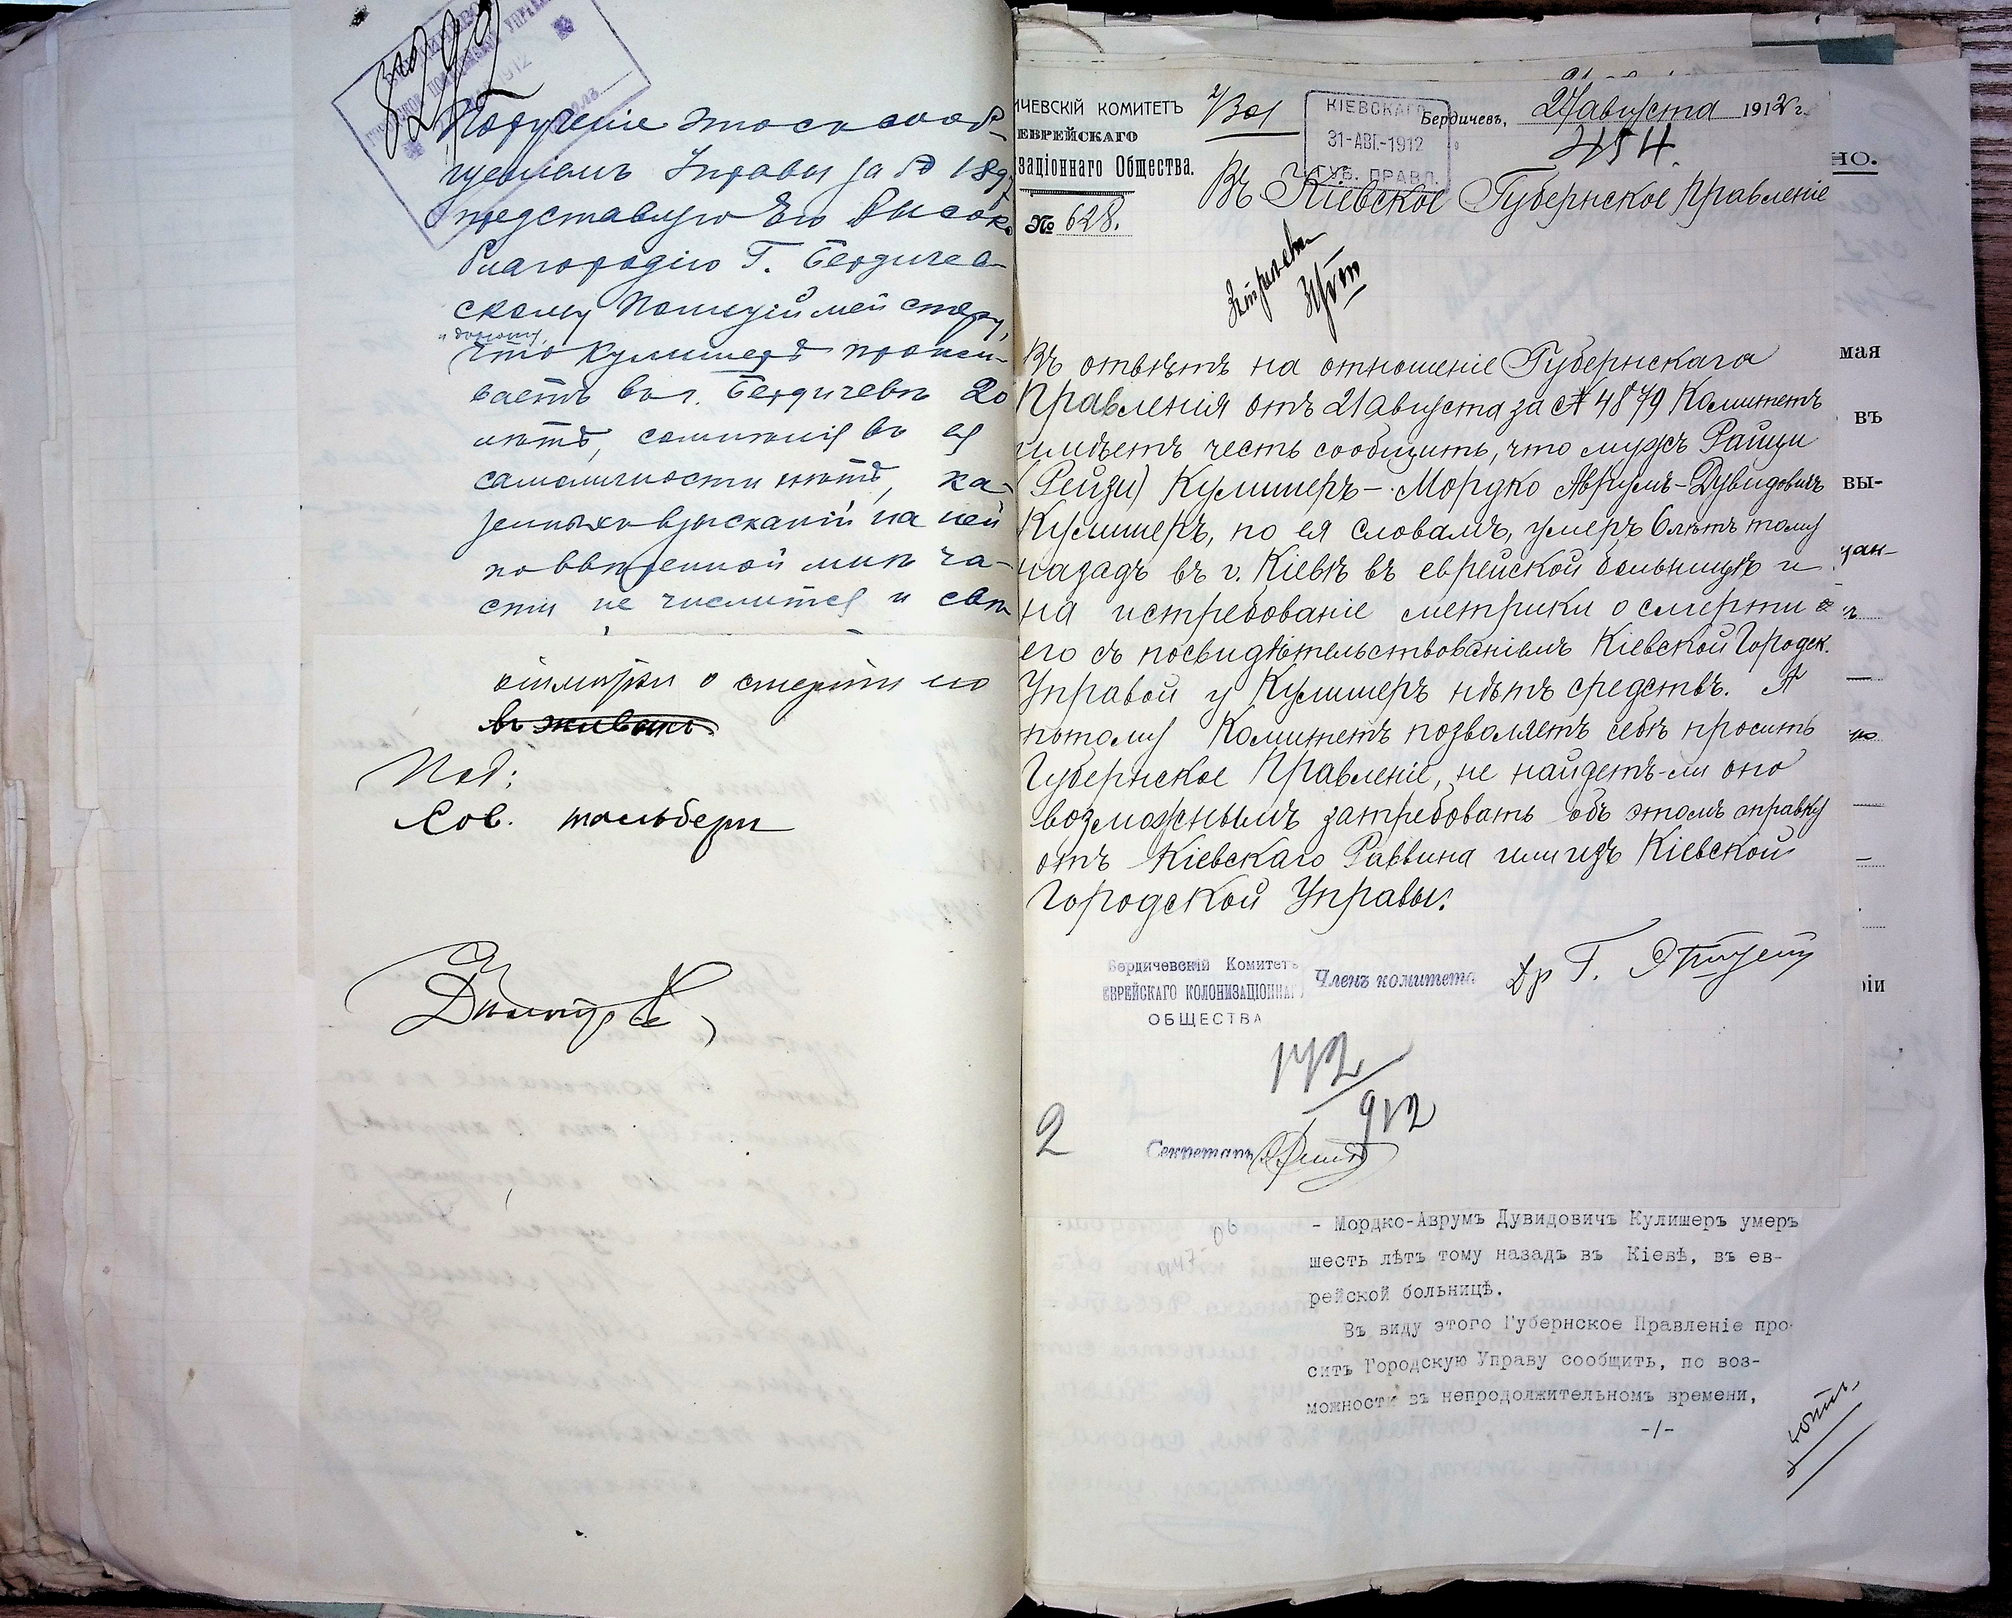 8292
1912
Порученіе это съ сооб-
щеніемъ Управы за № 189
представляю Его Высоко
благородію Г. Бердичев-
скому Полиціймейстеру,
и доношу,
что Кулишеръ прожи-
ваетъ въ г. Бердичевѣ 20
лѣтъ, сомнѣнія въ ея
самоличности нѣтъ, ка-
зенныхъ взысканій на ней
по ввѣренной мнѣ ча-
сти не числится и свѣ
о смерти
въ живыхъ
Под:
Сов.
ИЧЕВСКІЙ КОМИТЕТЪ
ЕВРЕЙСКАГО
заціоннаго Общества.
№ 628.
КІЕВСКАГО
31-АВГ.-1912
ГУБ. ПРАВЛ.
Бердичевъ, 27 августа 1912 г.
454.
Въ Кіевское Губернское Правленіе
Въ отвѣтъ на отношеніе Губернскаго
Правленія отъ 21 августа за № 4879 Комитетъ
имѣетъ честь сообщить, что мужъ Райци
(Рейзи) Кулишеръ – Мордко Аврумъ-Дувидовичъ
Кулишеръ, по ея словамъ, умеръ 6 лѣтъ тому
назадъ въ г. Кіевѣ въ еврейской больницѣ и
на истребованіе метрики о смерти
его съ посвидѣтельствованіемъ Кіевской Городск.
Управой у Кулишеръ нѣтъ средствъ. А
потому Комитетъ позволяетъ себѣ просить
Губернское Правленіе, не найдетъ-ли оно
возможнымъ затребовать объ этомъ справку
отъ Кіевскаго Раввина или изъ Кіевской
Городской Управы.
Бердичевскій Комитетъ
ЕВРЕЙСКАГО КОЛОНИЗАЦІОННАГ
ОБЩЕСТВА
Членъ комитета
Др Г.
172/912
2
Секретарь
- Мордко-Аврумъ Дувидовичъ Кулишеръ умеръ
шесть лѣтъ тому назадъ въ Кіевѣ, въ ев-
рейской больницѣ.
Въ виду этого Губернское Правленіе про-
ситъ Городскую Управу сообщить, по воз-
можности въ непродолжительномъ времени,
-/-
НО.
мая
въ
вы-
зан-
ріи